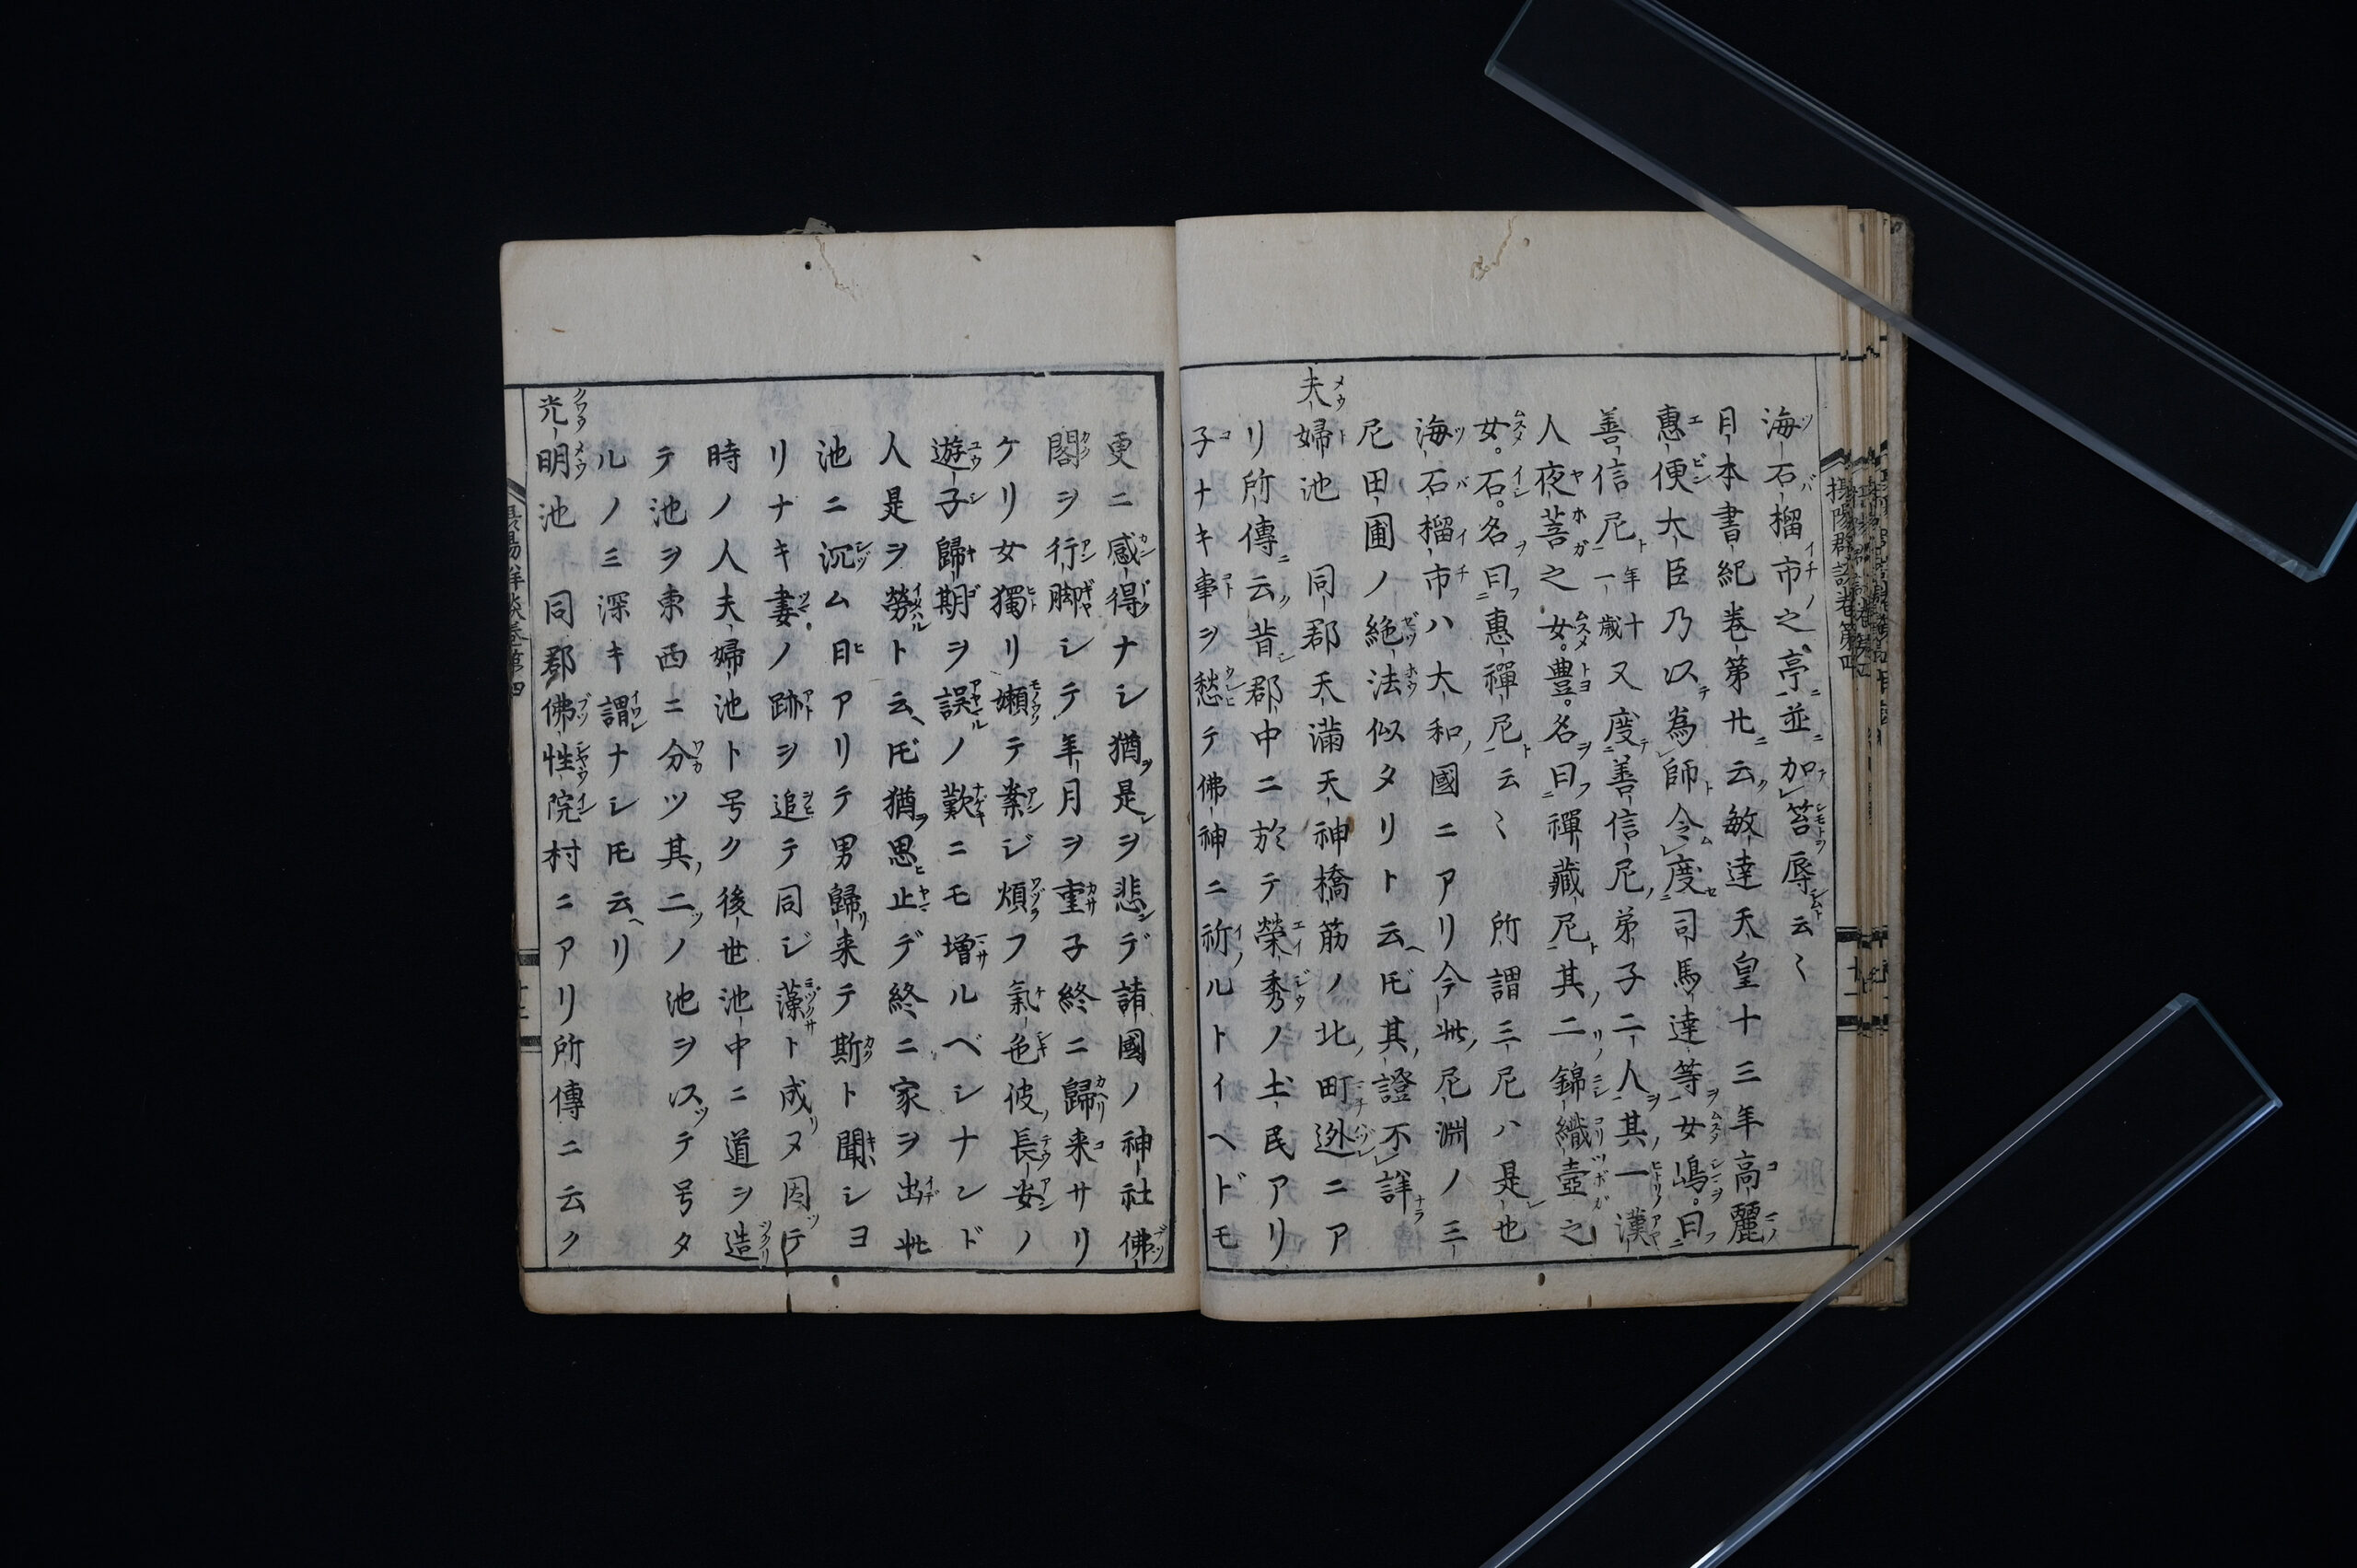 海石榴市之亭並加笞辱云〻
日本書紀巻第廿云敏達天皇十三年高麗
惠便大臣乃以為師令度司馬達等女嶋曰
善信尼年十一歳又度善信尼弟子二人其一漢
人夜菩之女豊名曰禪藏尼其二錦織壺之
女石名曰惠禪尼云〻　所謂三尼ハ是也
海石榴市ハ大和國ニアリ今此尼淵ノ三
尼田圃ノ絶法似タリト云ヘ𪜈其證不詳
夫婦池　同郡天滿天神橋筋ノ北町迯ニア
リ所傳云昔郡中ニ於テ榮秀ノ土民アリ
子ナキ事ヲ愁テ佛神ニ祈ルトイヘドモ
更ニ感得ナシ猶是ヲ悲デ諸國ノ神社佛
閣ヲ行脚シテ年月ヲ重子終ニ歸来サリ
ケリ女獨リ嬾テ案ジ煩フ氣色彼長安ノ
遊子歸期ヲ誤ノ歎ニモ増ルベシナンド
人是ヲ勞ト云ヘ𪜈猶思止デ終ニ家ヲ出此
池ニ沉ム日アリテ男歸来テ斯ト聞シヨ
リナキ妻ノ跡ヲ追テ同ジ藻ト成ヌ因テ
時ノ人夫婦池ト号ク後世池中ニ道ヲ造
テ池ヲ東西ニ分ツ其二ノ池ヲ以テ号タ
ルノミ深キ謂ナシ𪜈云ヘリ
光明池　同郡佛性院村ニアリ所傳ニ云ク